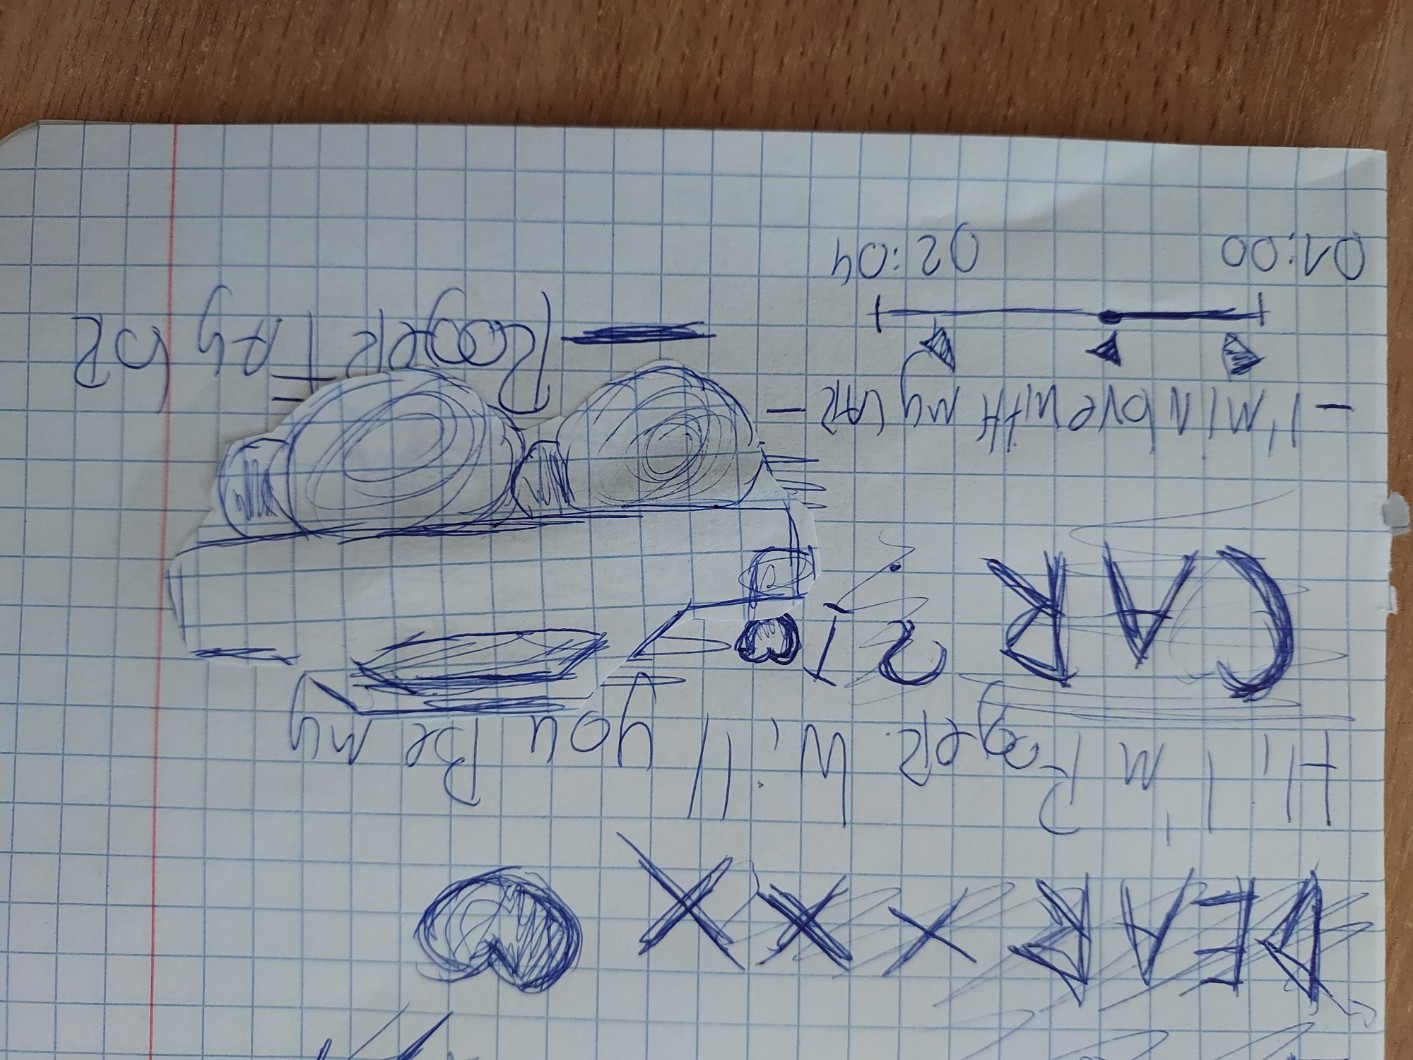 DEAR XXX
Hi, I'm RogeR Will you Be my
CAR ?!
- I'm IN love with my CAR -
01:00 02:04
RogeR TAylOR